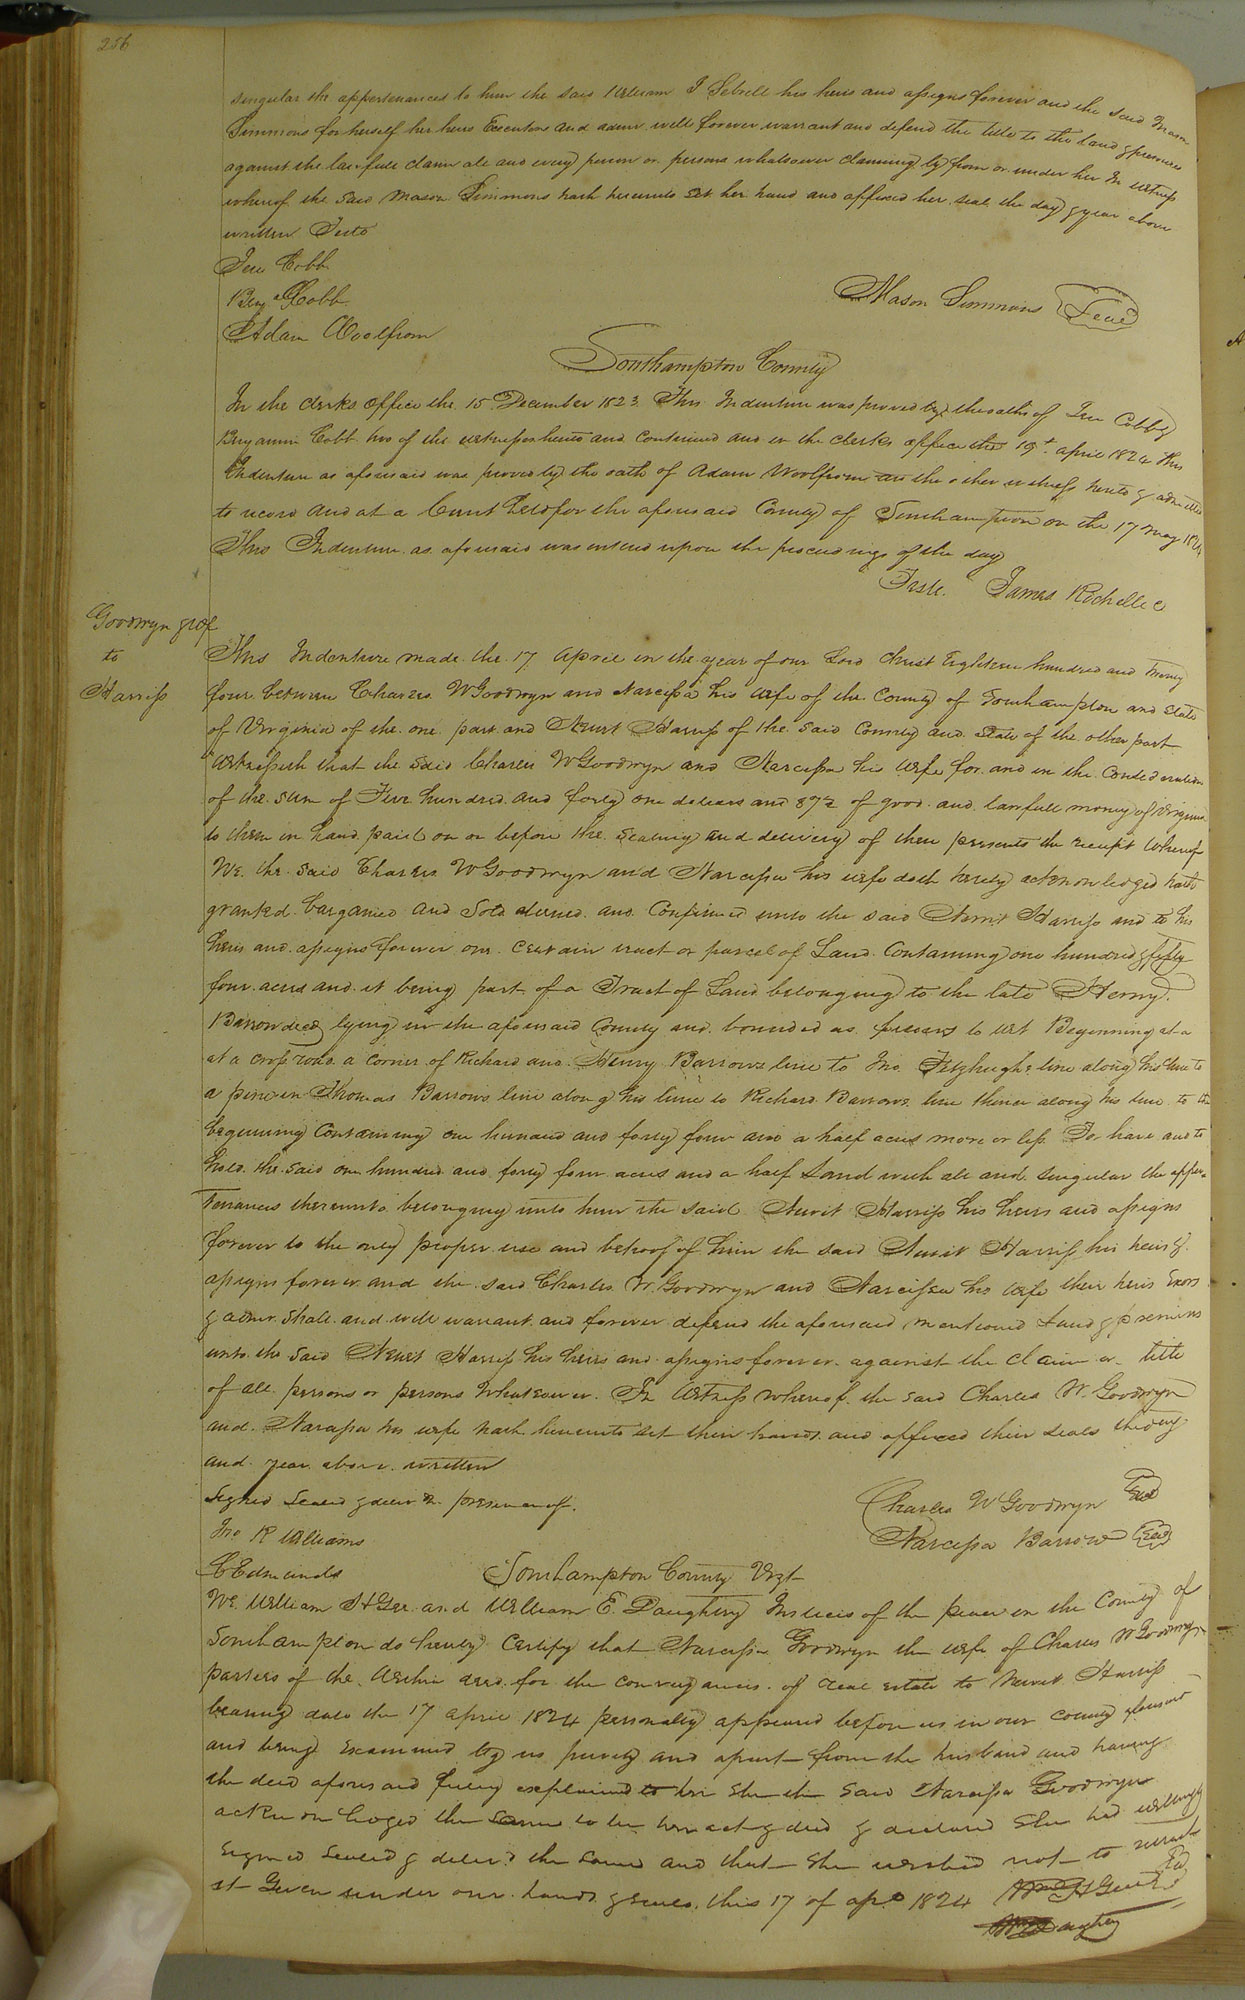 256
singular the appertenances to him the said William J Sebrell his heirs and assigns forever and the said Mason
Simmons for herself her heirs Executors and admr will forever warrant and defend the title to the land & premises
against the lawfull claim all and every person or persons whatsoever claiming by from or under her In witness
whereof the said Mason Simmons hath hereunto set her hand and affixed her seal the day & year above
written Teste
Jere Cobb
Benja Cobb
Mason Simmons Seal
Adam Woolfrom
Southampton County
In the clerks office the 15 December 1823 This Indenture was proved by the oaths of Jere Cobb &
Benjamin Cobb two of the witnesses hereto and continued and in the clerks office the 19t april 1824 this
Indenture as aforesaid was proved by the oath of Adam Woolfrom the other witness hereto & admitted
to record and at a Court held for the aforesaid County of Southampton on the 17 May 1824
This Indenture as aforesaid was entered upon the proceedings of the day
Teste James Rochelle C
Goodwyn &
to
Harriss
This Indenture made the 17 April in the year of our Lord Christ Eighteen hundred and twenty
four between Charles W Goodwyn and Narcissa his wife of the County of Southampton and State
of Virginia of the one part and Newit Harriss of the said County and State of the other part
Witnesseth that the said Charles W Goodwyn and Narcissa his wife for and in the Consideration
of the sum of Five hundred and forty one dollars and 87½ of good and lawfull money of Virginia
to them in hand paid on or before the sealing and delivery of these presents the receipt whereof
We the said Charles W Goodwyn and Narcissa his wife doth hereby acknowledged hath
granted bargained and Sold aliened and Confirmed unto the said Newit Harriss and to his
heirs and assigns forever one certain tract or parcel of Land Containing one hundred & fifty
four acres and it being part of a Tract of Land belonging to the late Henry
Barrow decd lying in the aforesaid County and bounded as follows to wit Beginning at a
at a cross road a corner of Richard and Henry Barrows line to Jno Fitzhughs line along his line to
a pine in Thomas Barrows line along his line to Richard Barrows line thence along his line to the
beginning Containing one hundred and forty four and a half acres more or less To have and to
hold the said one hundred and forty four acres and a half Land with all and singular the apper
tenances thereunto belonging unto him the said Newit Harriss his heirs and assigns
forever to the only proper use and behoof of him the said Newit Harriss his heirs &
assigns forever and the said Charles W. Goodwyn and Narcissa his wife their heirs Exors
& admr shall and will warrant and forever defend the aforesaid mentioned Land & premises
unto the said Newit Harriss his heirs and assigns forever against the claim or title
of all persons or persons whatsoever In Witness whereof the said Charles W. Goodwyn
and Narcissa his wife hath hereunto set their hands and affixed their seals the day
and year above written
Signed Sealed & deliv in presence of
Charles W Goodwyn Seal
Jno R Williams
Narcissa Barrow Seal
C Edmunds
Southampton County
We William H Gee and William E. Daughtry Justices of the peace in the County of
Southampton do hereby Certify that Narcissa Goodwyn the wife of Charles W Goodwyn
parties of the within deed for the conveyances of real estate to Newit Harriss
bearing date the 17 april 1824 personally appeared before us in our county aforesaid
and being examined by us privily and apart from the husband and having
the deed aforesaid fully explained to her She the said Narcissa Goodwyn
acknowledged the same to be her act & deed & declared She had willingly
signed sealed & delivd the same and that She wished not to retract
it Given under our hands & seals this 17 of apl 1824